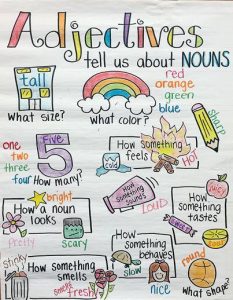 Adjectives
tell us about NOUNS
tall
What size?
red
orange
green
blue
What color?
sharp
one
two
three
four
Five
5
How many?
How something
feels
Cold
Hot
bright
How a noun
looks
pretty
scary
How
something
sounds
LOUD
juicy
How
something
tastes
sour
How
something
behaves
slow
nice
stinky
How something
smells
fresh
round
What shape?